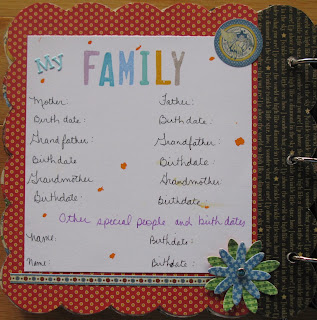 My FAMILY
Mother: Father:
Birth date: Birthdate:
Grandfather: Grandfather:
Birthdate Birthdate:
Grandmother Grandmother
Birthdate: Birthdate:
Other special people and birth dates
Name: Birthdate:
Name: Birthdate: